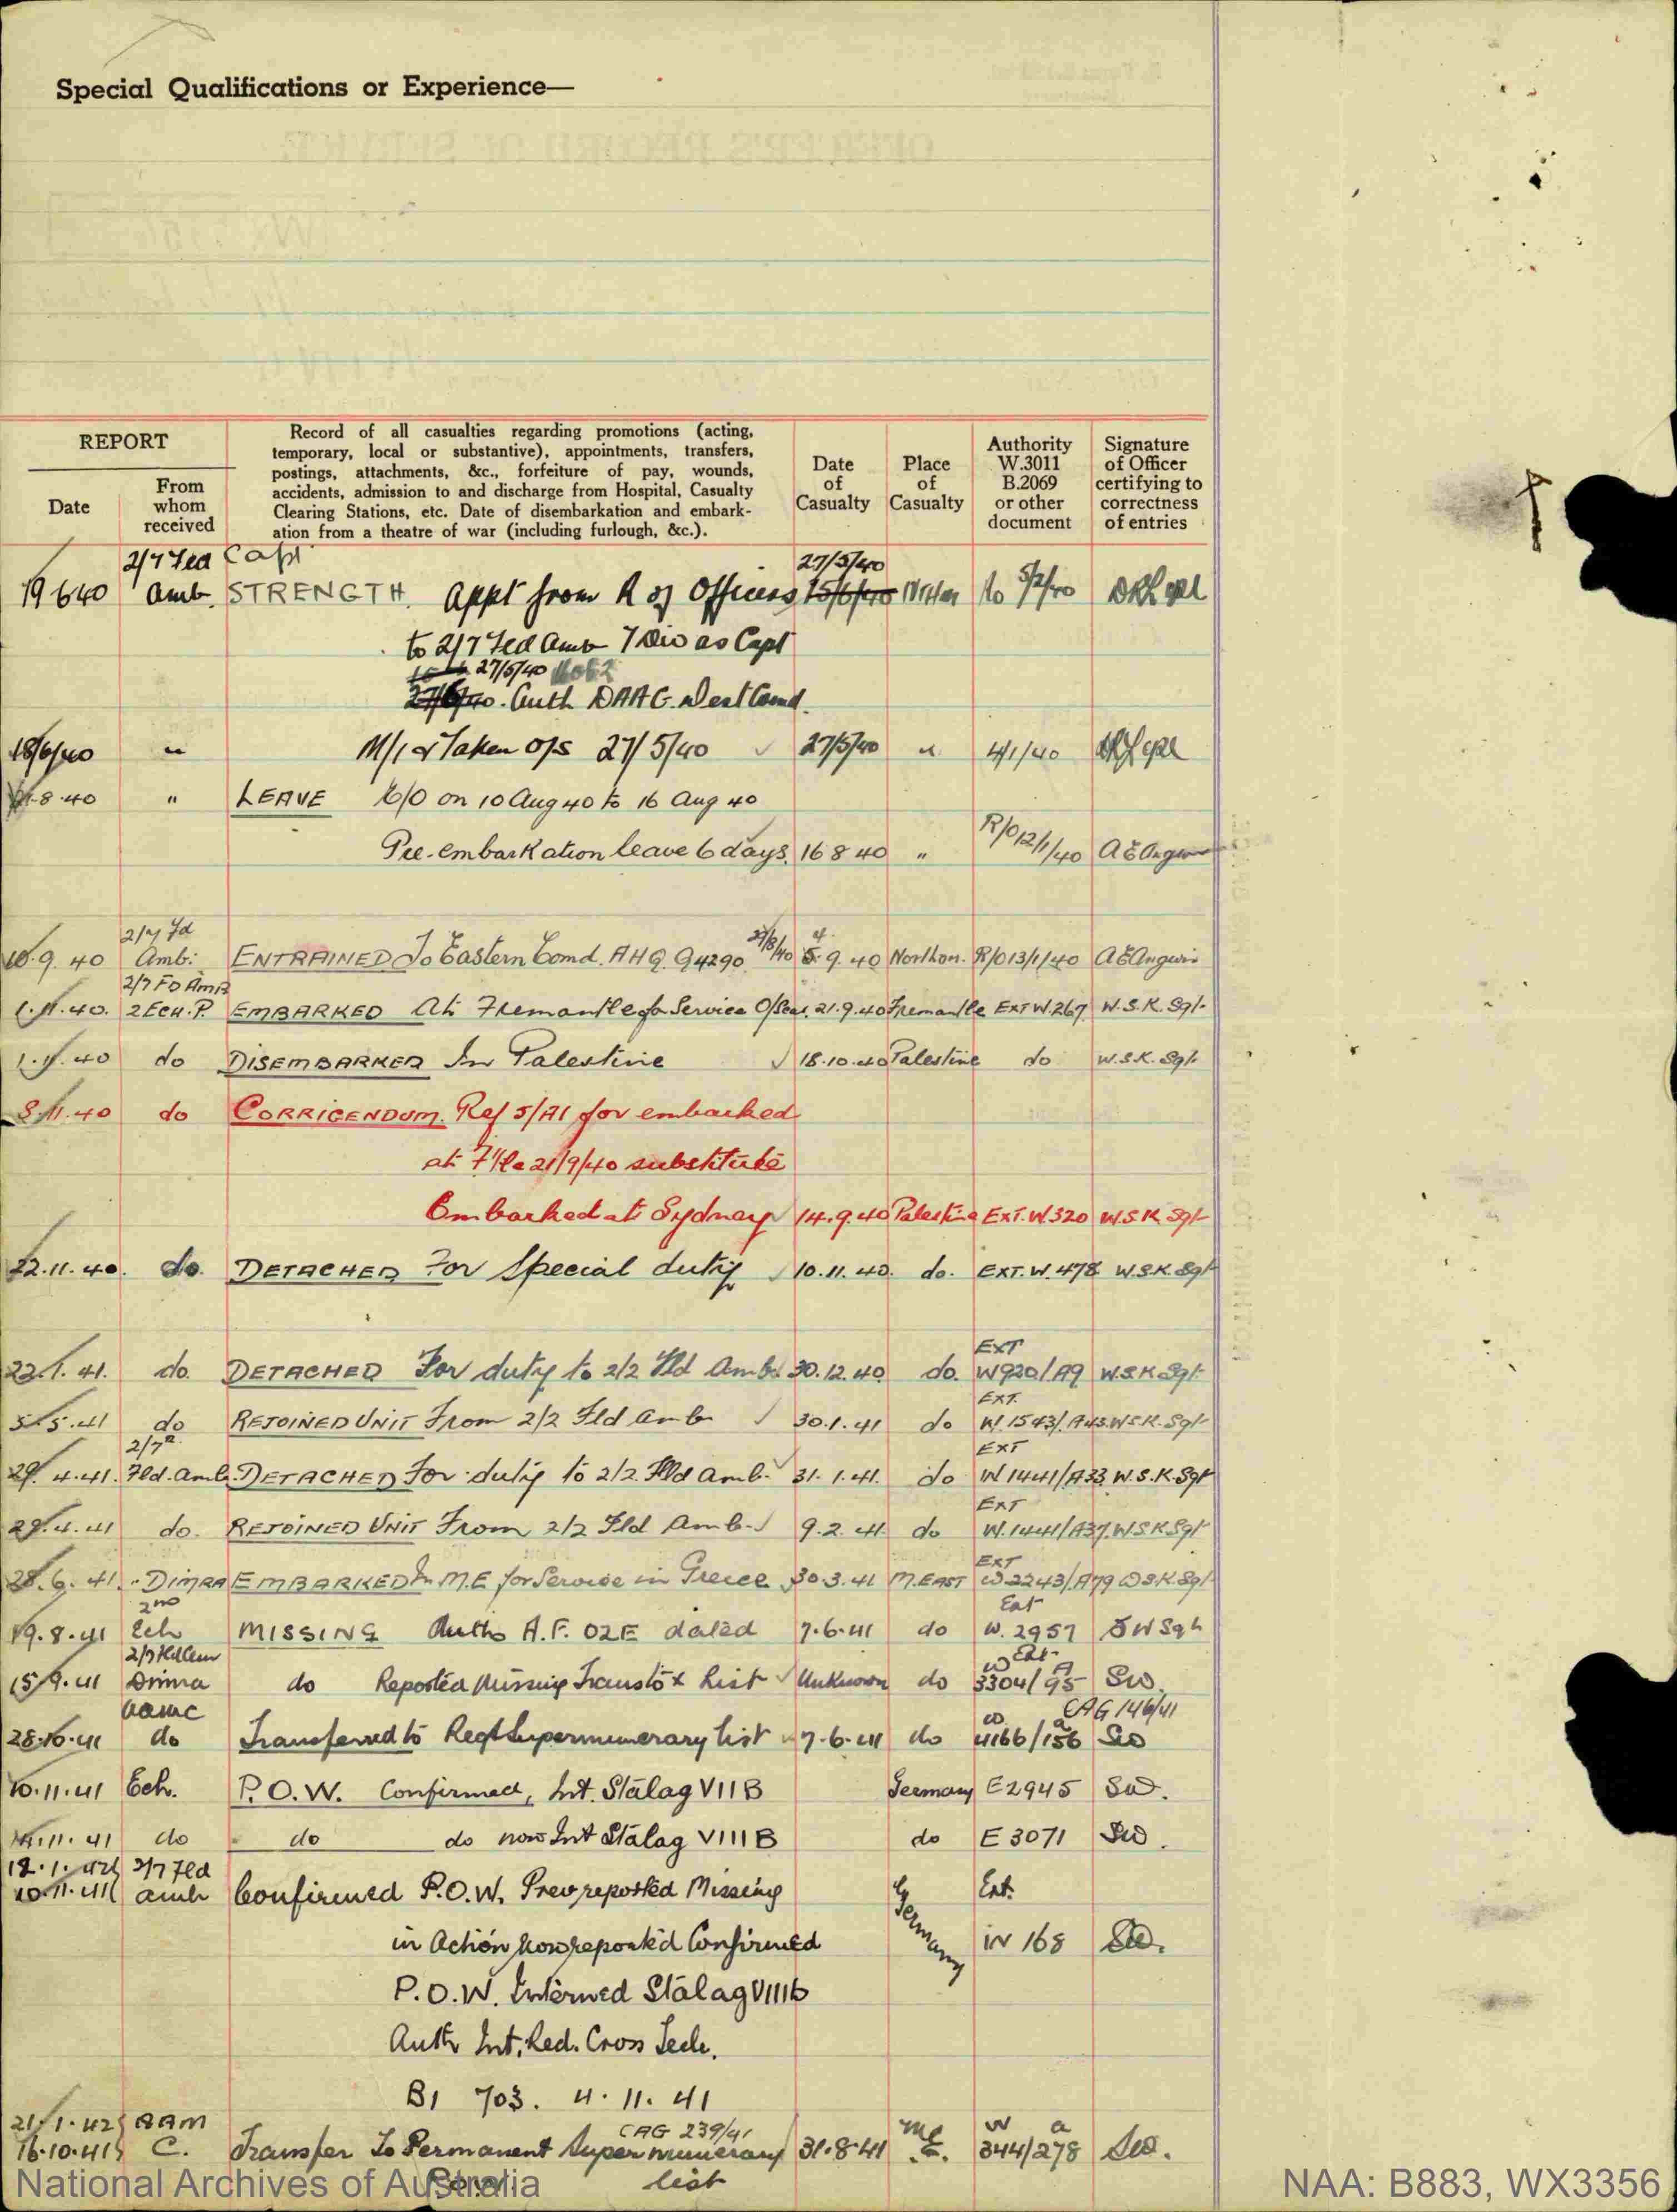 Special Qualifications or Experience—
REPORT
Date
From whom received
Record of all casualties regarding promotions (acting,
temporary, local or substantive), appointments, transfers,
postings, attachments, &c., forfeiture of pay, wounds,
accidents, admission to and discharge from Hospital, Casualty
Clearing Stations, etc. Date of disembarkation and embark-
ation from a theatre of war (including furlough, &c.).
Date of Casualty
Place of Casualty
Authority W.3011 B.2069 or other document
Signature of Officer certifying to correctness of entries
2/7 Fld Capt 27/5/40
19 6 40 Amb. STRENGTH. Appt from R of Officers 15/6/40
to 2/7 Fld Amb 7 Div as Capt
27/5/40
Auth DAAG. West Comd.
18/6/40 " M/1 & Taken O/S 27/5/40 27/5/40 " 4/1/40
8.40 " LEAVE R/O on 10 Aug 40 to 16 Aug 40
Pre-embarkation leave 6 days. 16 8 40 " R/O 12/1/40 A E Angwin
2/7 Fd 27/8/40 4.
10.9.40 Amb: ENTRAINED To Eastern Comd. AHQ. Q4290 5.9.40 Northam. R/O 13/1/40 A E Angwin
2/7 FD AMB
1.11.40. 2 ECH.P. EMBARKED At Fremantle for Service O/Seas. 21.9.40 Fremantle EXT W.267 W.S.K. Sgt.
1.11.40 do DISEMBARKED In Palestine 18.10.40 Palestine do W.S.K. Sgt.
8.11.40 do CORRIGENDUM. Ref 5/A1 for embarked
at F'tle 21/9/40 substitute
Embarked at Sydney 14.9.40 Palestine EXT. W.320 W.S.K. Sgt
22.11.40. do. DETACHED For Special duty 10.11.40. do. EXT. W.478 W.S.K. Sgt
EXT
22.1.41. do. DETACHED For duty to 2/2 Fld Amb. 30.12.40 do. W920/A9 W.S.K. Sgt.
EXT.
5.5.41 do REJOINED UNIT From 2/2 Fld Amb 30.1.41 do W.1543/A43 W.S.K. Sgt
2/7th EXT
29.4.41. Fld. Amb. DETACHED For duty to 2/2 Fld Amb. 31.1.41. do W1441/A33 W.S.K. Sgt
EXT
29.4.41 do. REJOINED UNIT From 2/2 Fld Amb. 9.2.41 do W.1441/A37. W.S.K Sgt
EXT
28.6.41. DIMRA EMBARKED In M.E for Service in Greece 30.3.41 M.EAST W2243/A79 W.S.K. Sgt
2nd Ext
19.8.41 Ech MISSING Auth A.F. O2E dated 7.6.41 do W.2957 SW Sgt
2/7 Fld Amb Ext.
15.9.41 Dimra do Reported Missing Transf to X List Unknown do W 3304/A 95 SW.
AAMC CAG 146/41
28.10.41 do Transferred to Regtl Supernumerary List 7.6.41 do W 4166/a 156 SW
10.11.41 Ech. P.O.W. Confirmed, Int. Stalag VIIB Germany E2945 SW.
11.41 do do do now Int Stalag VIIIB do E 3071 SW.
12.1.42 2/7 Fld
10.11.41 Amb Confirmed P.O.W. Prev reported Missing Germany Ext.
in Action now reported Confirmed IN 168 SW.
P.O.W. Interned Stalag VIIIb
Auth Int. Red. Cross Tele.
B1 703. 4.11.41
21.1.42 AAM CAG 239/41
16.10.41 C. Transfer To Permanent Supernumerary 31.8.41 ME. W 344/a 278 SW.
list
National Archives of Australia
NAA: B883, WX3356